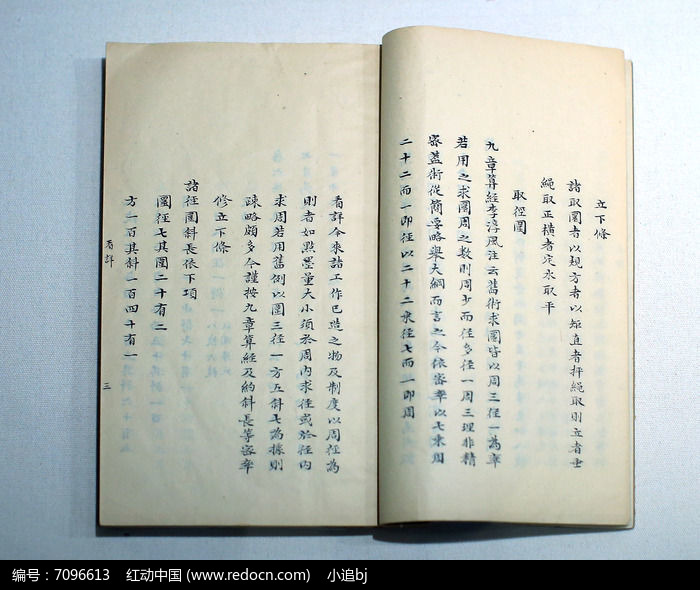 立下條
諸取圜者以規方者以矩直者抨繩取則立者垂
繩取正橫者定水取平
取徑圍
九章算經李淳風注云舊術求圜皆以周三徑一為率
若用之求圜周之數則周少而徑多徑一周三理非精
密蓋術從簡要略舉大綱而言之今依密率以七乘周
二十二而一即徑以二十二乘徑七而一即周
看詳今來諸工作已造之物及制度以周徑為
則者如點墨量大小須於周內求徑或於徑內
求周若用舊例以圍三徑一方五斜七為據則
疎略頗多今謹按九章算經及約斜長等密率
修立下條
諸徑圍斜長依下項
圜徑七其圍二十有二
方一百其斜一百四十有一
看詳 三
编号：7096613 红动中国 (www.redocn.com) 小追bj